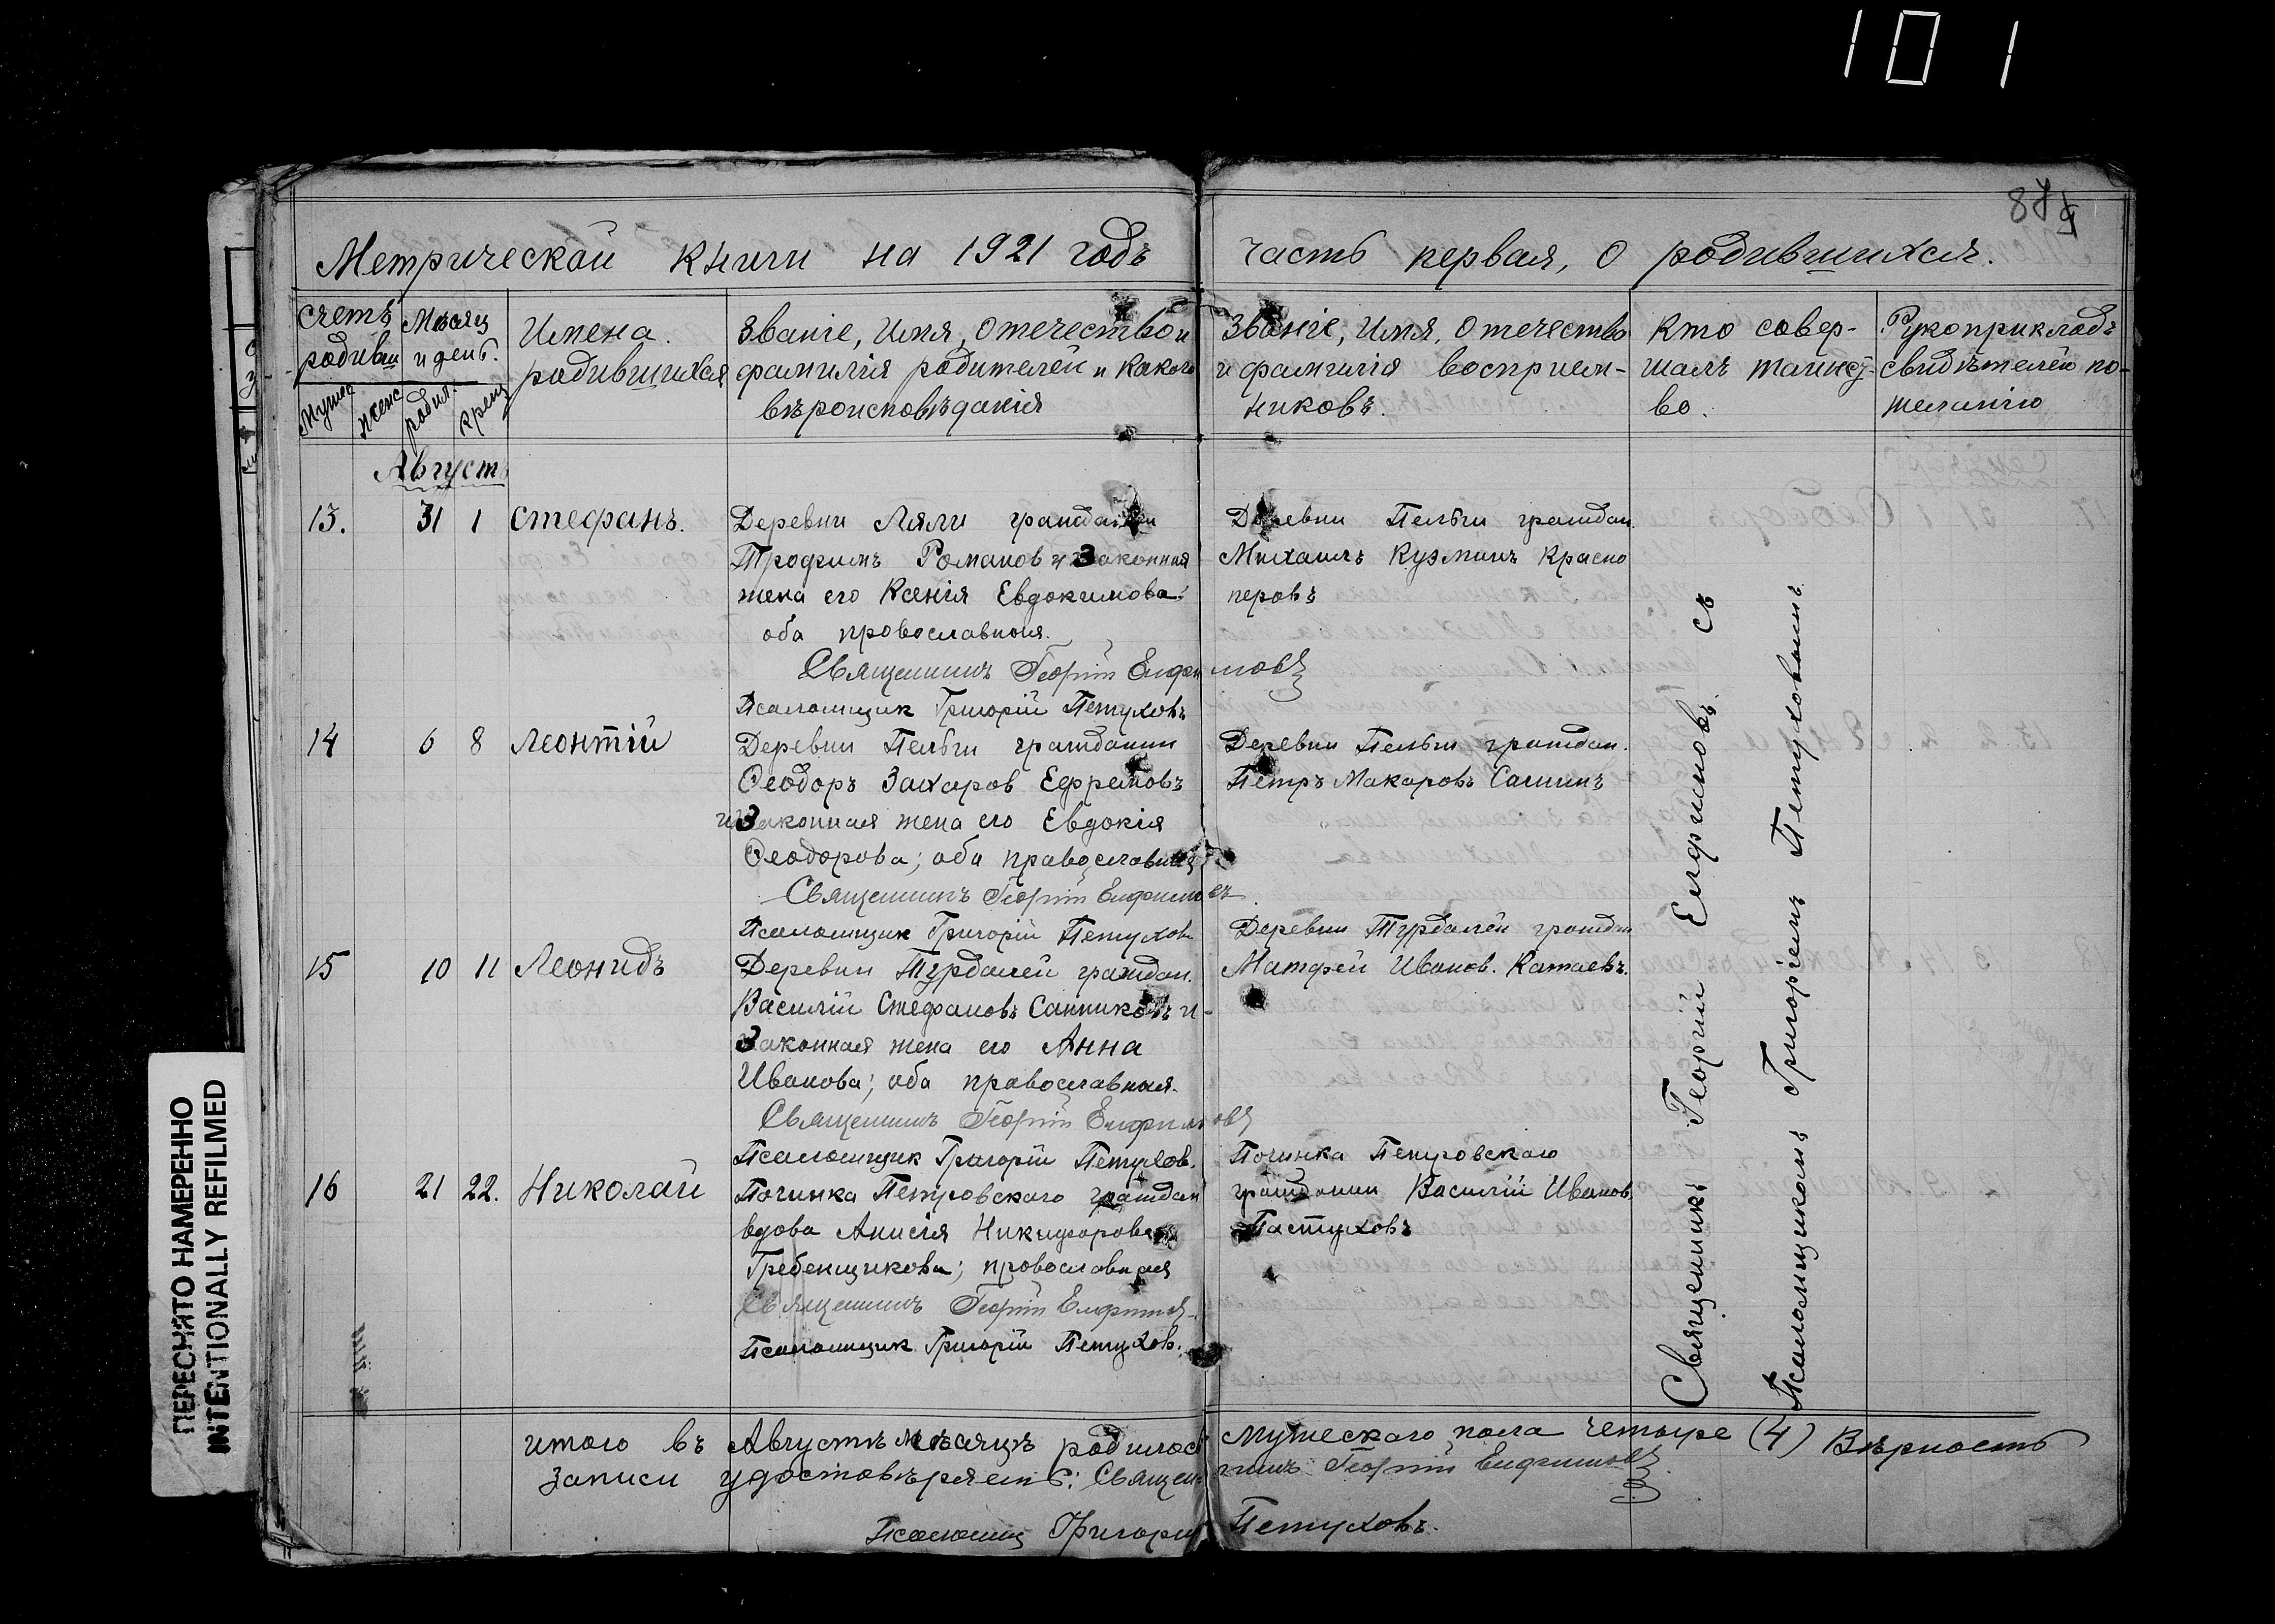 101
87
Метрической книги на 1921 годъ часть первая, о родившихся.
счетъ родивш
Мѣсяц и день.
Имена. родившихся
Званіе, имя, отечество и
фамилія родителей и какого
вѣроисповѣданія
Званіе, имя, отечество
и фамилія воспріем-
никовъ.
Кто совер-
шалъ таинст-
во.
Рукоприкладъ
свидѣтелей по-
желанію
мужес
женс
родил.
крещ
Августъ
13. 31 1 Стефанъ.
Деревни Ляли граждани
Трофимъ Романов и Законная
жена его Ксенія Евдокимова.
оба провославноя.
Священникъ Георгій Елфимовъ
Псаломщик Григорій Петуховъ
Деревни Пельги граждан.
Михаилъ Кузминъ Красно
перовъ
14 6 8 Леонтій
Деревни Пельги гражданин
Ѳеодоръ Захаров Ефремовъ
и Законная жена его Евдокія
Ѳеодорова; оба православныя
Священникъ Георгій Елфимовъ.
Псаломщик Григорій Петухов
Деревни Пельги граждан.
Петръ Макаровъ Санинъ
15 10 11 Леонидъ
Деревни Турдалей граждан.
Василій Стефановъ Санниковъ и-
Законная жена его Анна
Иванова; оба православная.
Священникъ Георгій Елфимовъ
Псаломщик Григорій Петухов.
Деревни Турдалей граждан
Матфей Иванов. Катаевъ.
16 21 22. Николай
Починка Петровскаго граждан
вдова Анисія Никифорова
Гребенщикова; провославная
Священникъ Георгій Елфимов
Псаломщик Григорій Петухов.
Починка Петровскаго
гражданин Василій Иванов.
Пастуховъ
Священникъ Георгій Елфимовъ съ
Псаломщикомъ Григоріемъ Петуховымъ
итого въ Августѣ мѣсяцѣ родилос мужескаго пола четыре (4) Вѣрность
записи удостовѣряетъ: Священникъ Георгій Елфимовъ
Псаломщ Григорій Петуховъ.
ПЕРЕСНЯТО НАМЕРЕННО
INTENTIONALLY REFILMED